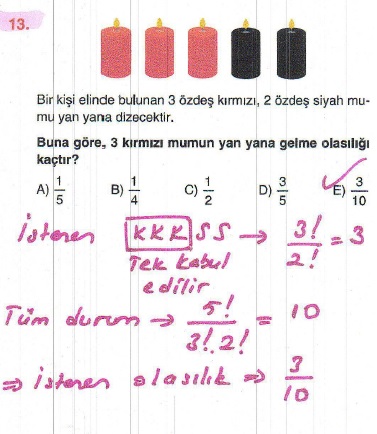 13.
Bir kişi elinde bulunan 3 özdeş kırmızı, 2 özdeş siyah mu-
mu yan yana dizecektir.
Buna göre, 3 kırmızı mumun yan yana gelme olasılığı
kaçtır?
A) 1/5 B) 1/4 C) 1/2 D) 3/5 E) 3/10
İstenen KKK SS → 3!/2! = 3
Tek kabul
edilir
Tüm durum → 5!/3!.2! = 10
⇒ İstenen olasılık ⇒ 3/10